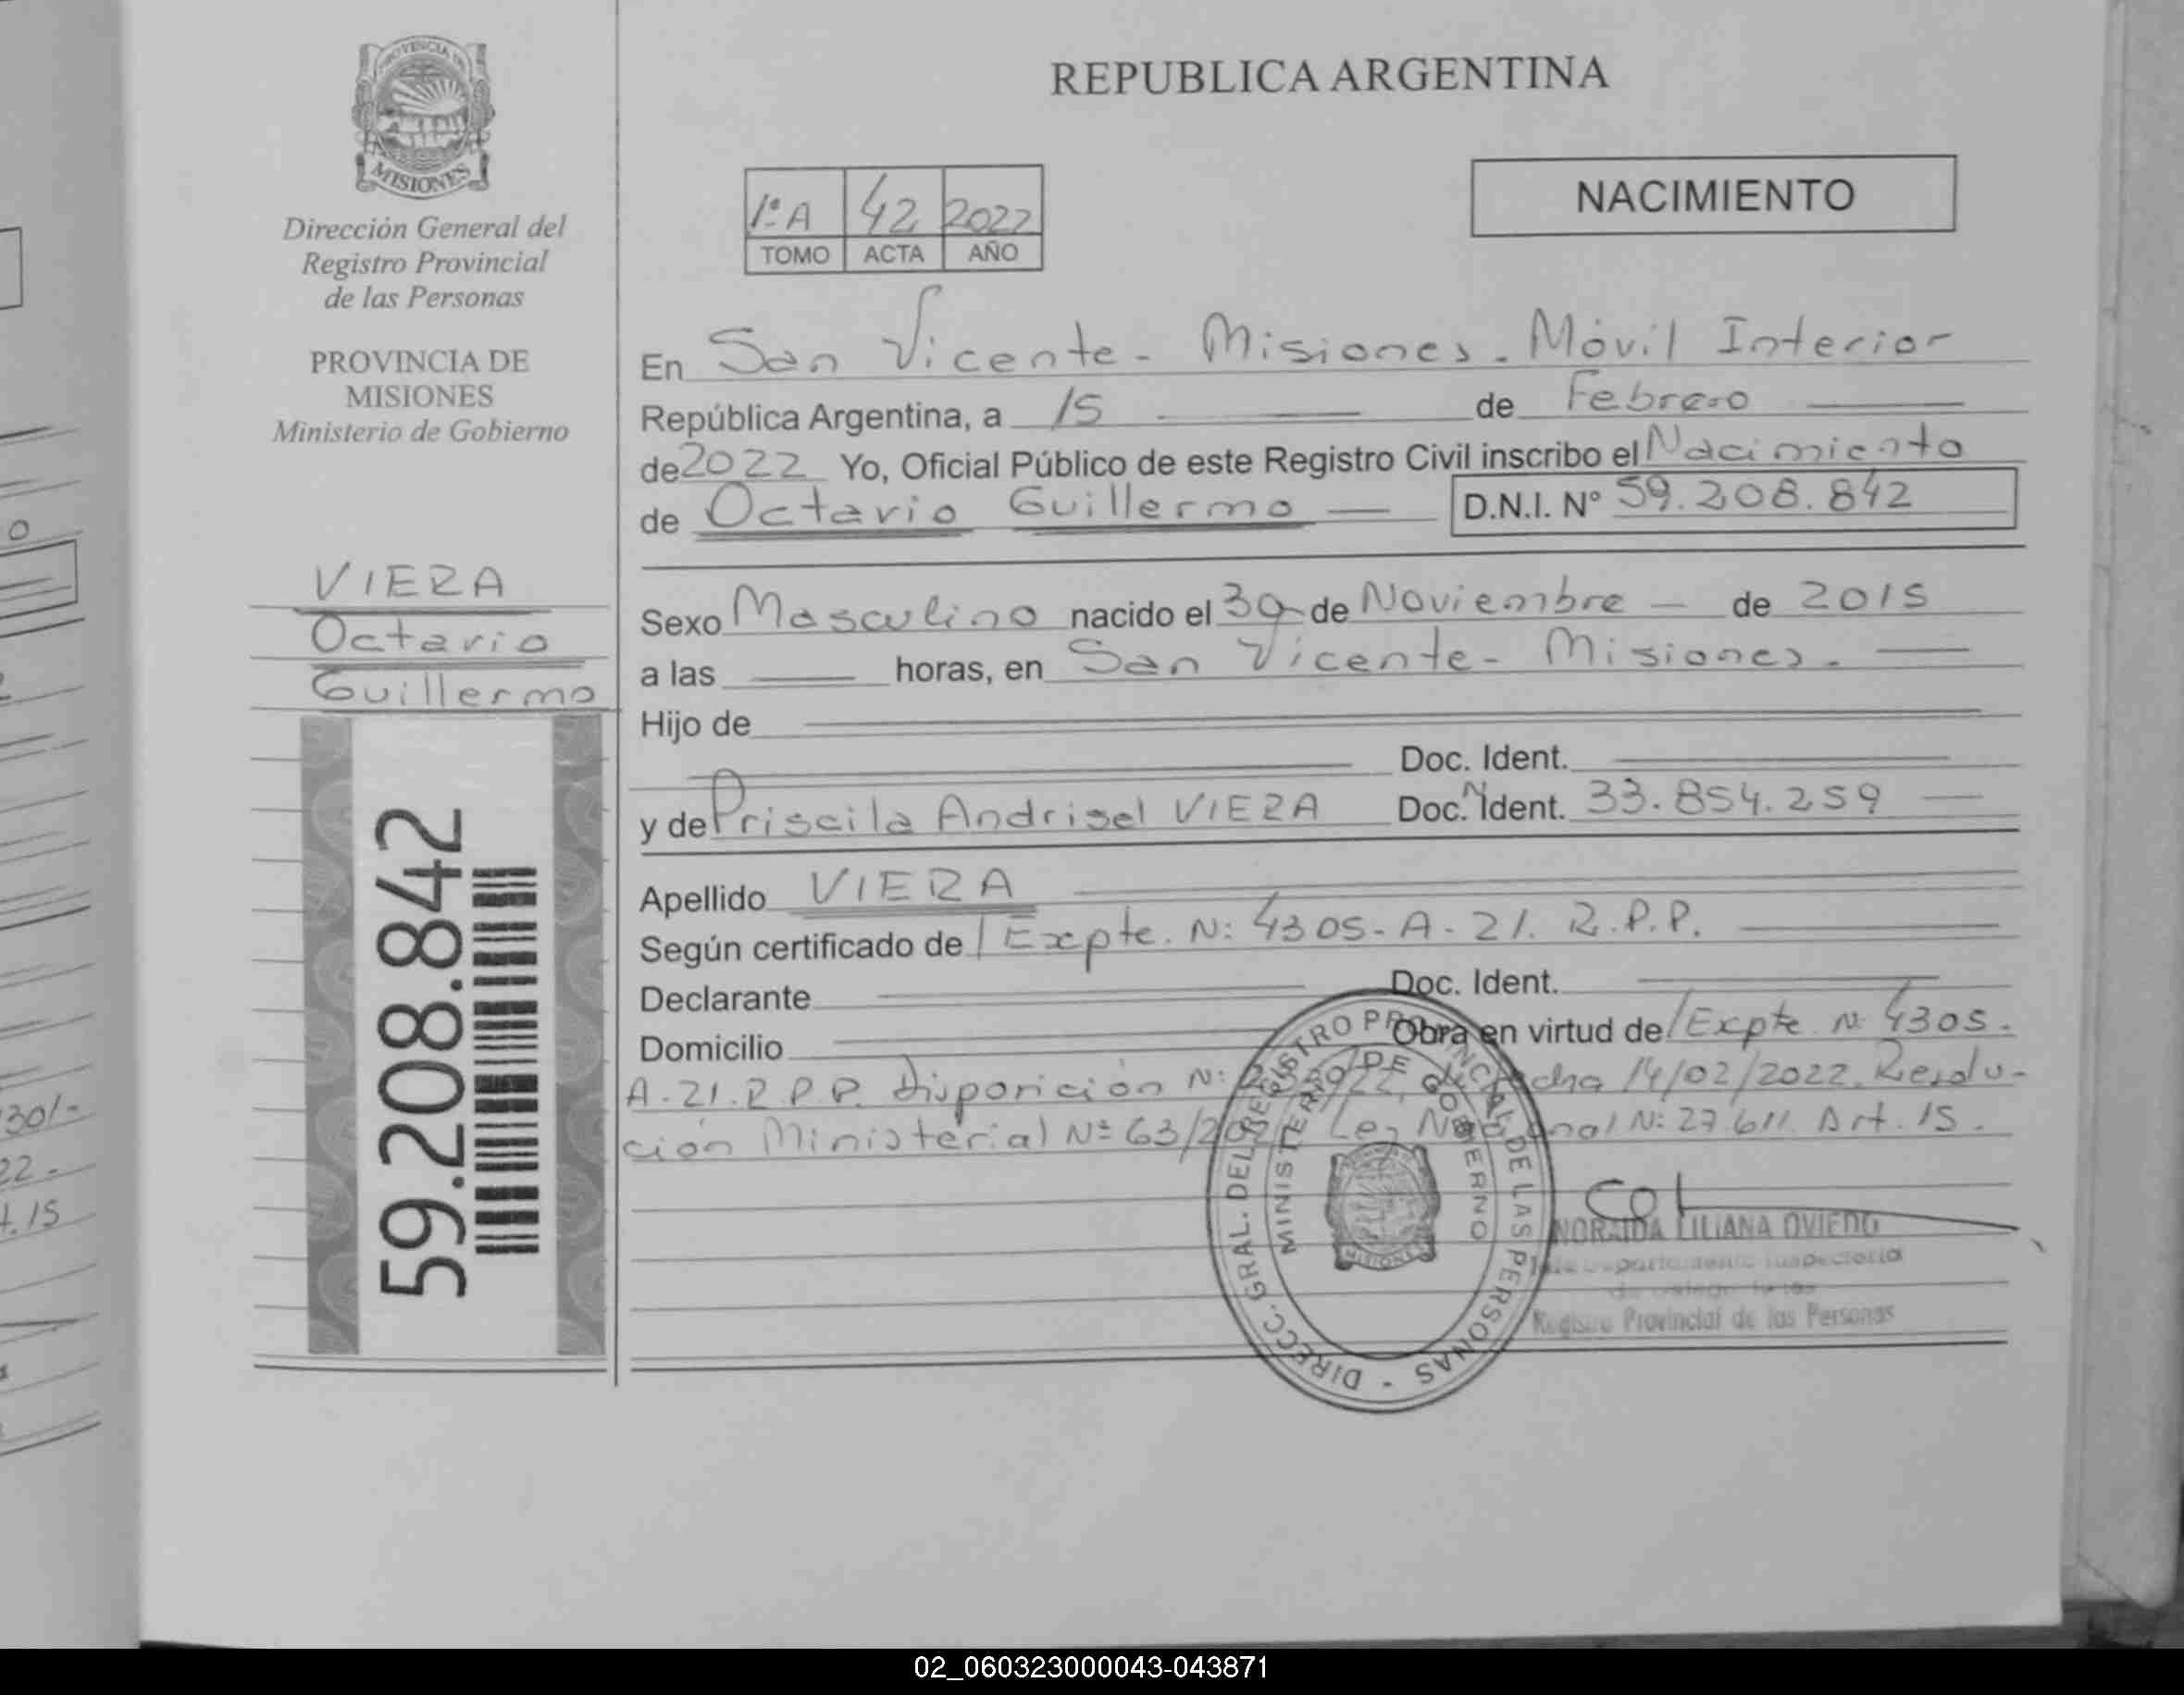 PROVINCIA DE
MISIONES
Dirección General del
Registro Provincial
de las Personas
PROVINCIA DE
MISIONES
Ministerio de Gobierno
VIERA
Octavio
Guillermo
59.208.842
REPUBLICA ARGENTINA
1ºA 42 2022
TOMO ACTA AÑO
NACIMIENTO
En San Vicente - Misiones. Móvil Interior
República Argentina, a 15 de Febrero
de 2022 Yo, Oficial Público de este Registro Civil inscribo el Nacimiento
de Octavio Guillermo D.N.I. Nº 59.208.842
Sexo Masculino nacido el 30 de Noviembre de 2015
a las horas, en San Vicente - Misiones.
Hijo de
Doc. Ident.
y de Priscila Andrisel VIERA Doc. Ident. 33.854.259
Apellido VIERA
Según certificado de / Expte. Nº 4305-A-21. R.P.P.
Declarante Doc. Ident.
Domicilio Obra en virtud de / Expte Nº 4305-
A-21.R.P.P. Disposición Nº fecha 14/02/2022. Resolu-
ción Ministerial Nº 63/ Ley Nacional Nº 27.611. Art. 15.
DIRECC. GRAL. DEL REGISTRO PROVINCIAL DE LAS PERSONAS -
MINISTERIO DE GOBIERNO
MISIONES
NORAIDA LILIANA OVIEDO
Registro Provincial de las Personas
30/-
22-
t.15
02_060323000043-043871